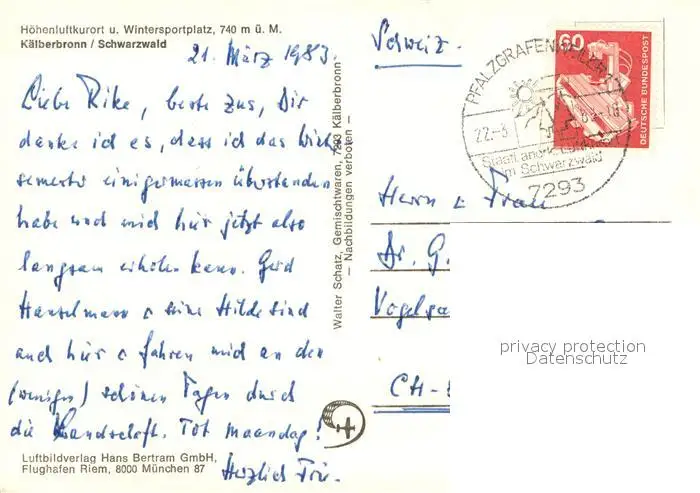 Höhenluftkurort u. Wintersportplatz, 740 m ü. M.
Kälberbronn / Schwarzwald
21. März 1983.
Liebe Rike, beste Zus, Dir
danke ich es, dass ich das Winter
semester einigermassen überstanden
habe und mich hier jetzt also
langsam erholen kann. Gerd
Hanselmann & seine Hilde sind
auch hier & fahren mich an den
(wenigen) schönen Tagen durch
die Landschaft. Tot maandag!
Herzlich
Luftbildverlag Hans Bertram GmbH,
Flughafen Riem, 8000 München 87
Walter Schatz, Gemischtwaren, 7293 Kälberbronn
— Nachbildungen verboten —
Schweiz.
PFALZGRAFENWEILER
22.-3.
Staatl. anerk. Luftkurort
im Schwarzwald
7293
60
DEUTSCHE BUNDESPOST
Herrn & Frau
Dr. G.
CH-
privacy protection
Datenschutz